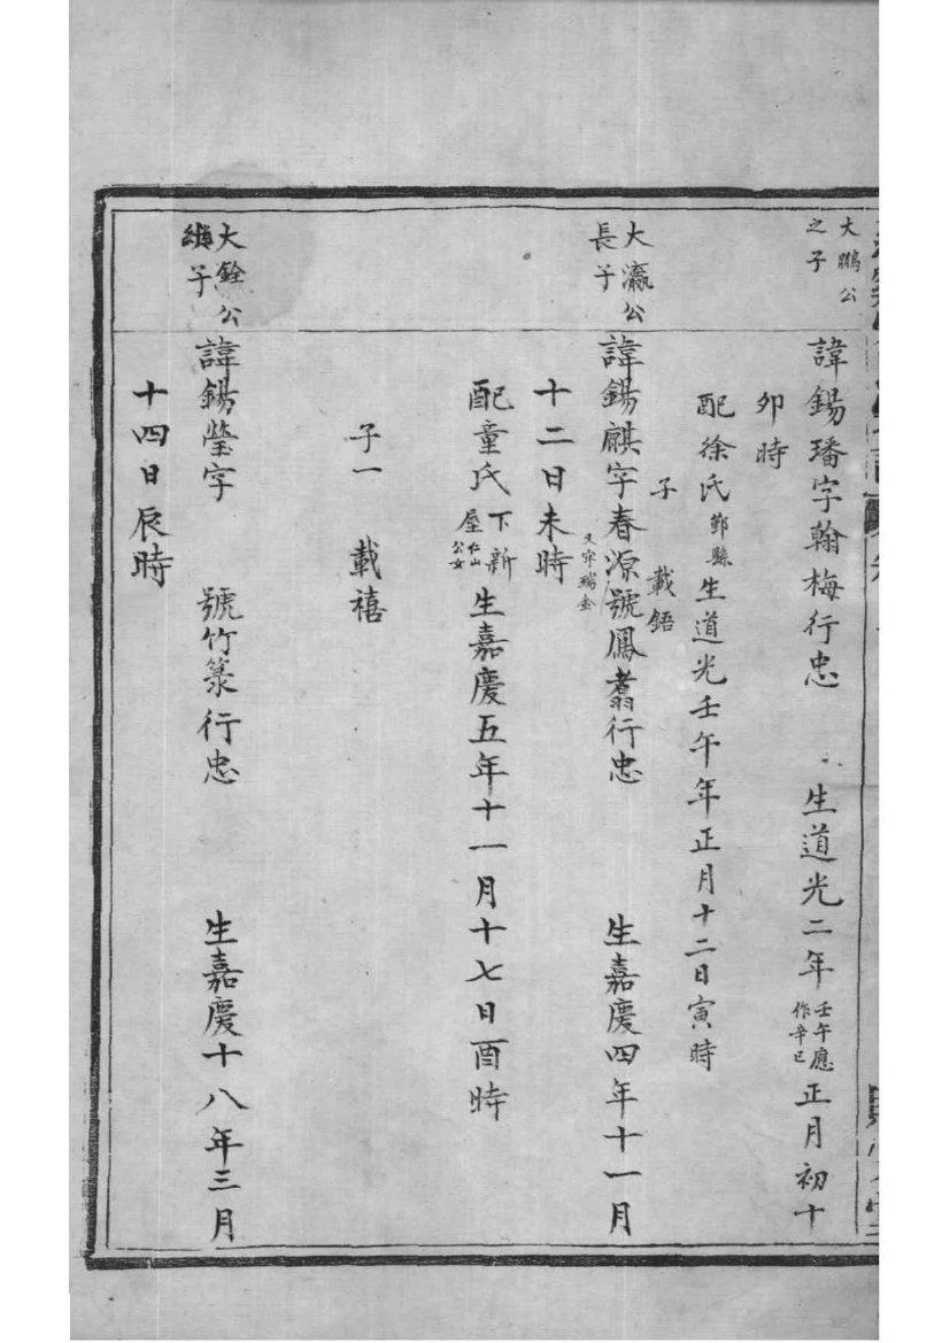 大鵬公
之子
諱錫璠字翰梅行忠 生道光二年壬午應作辛巳正月初十
卯時
配徐氏鄞縣生道光壬午年正月十二日寅時
子 載鋙
大瀛公
長子
諱錫麒字春源號鳳翥行忠 生嘉慶四年十一月
又字瑞金
十二日未時
配童氏下新屋仁山公女生嘉慶五年十一月十七日酉時
子一 載禧
大銓公
繼子
諱錫瑩字 號竹箓行忠 生嘉慶十八年三月
十四日辰時